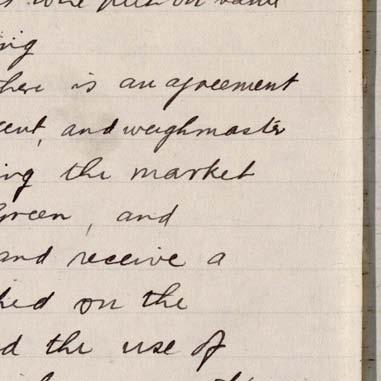 on same
ing
here is an agreement
cent, and weighmaster
ing the market
Green, and
and receive a
hed on the
d the use of